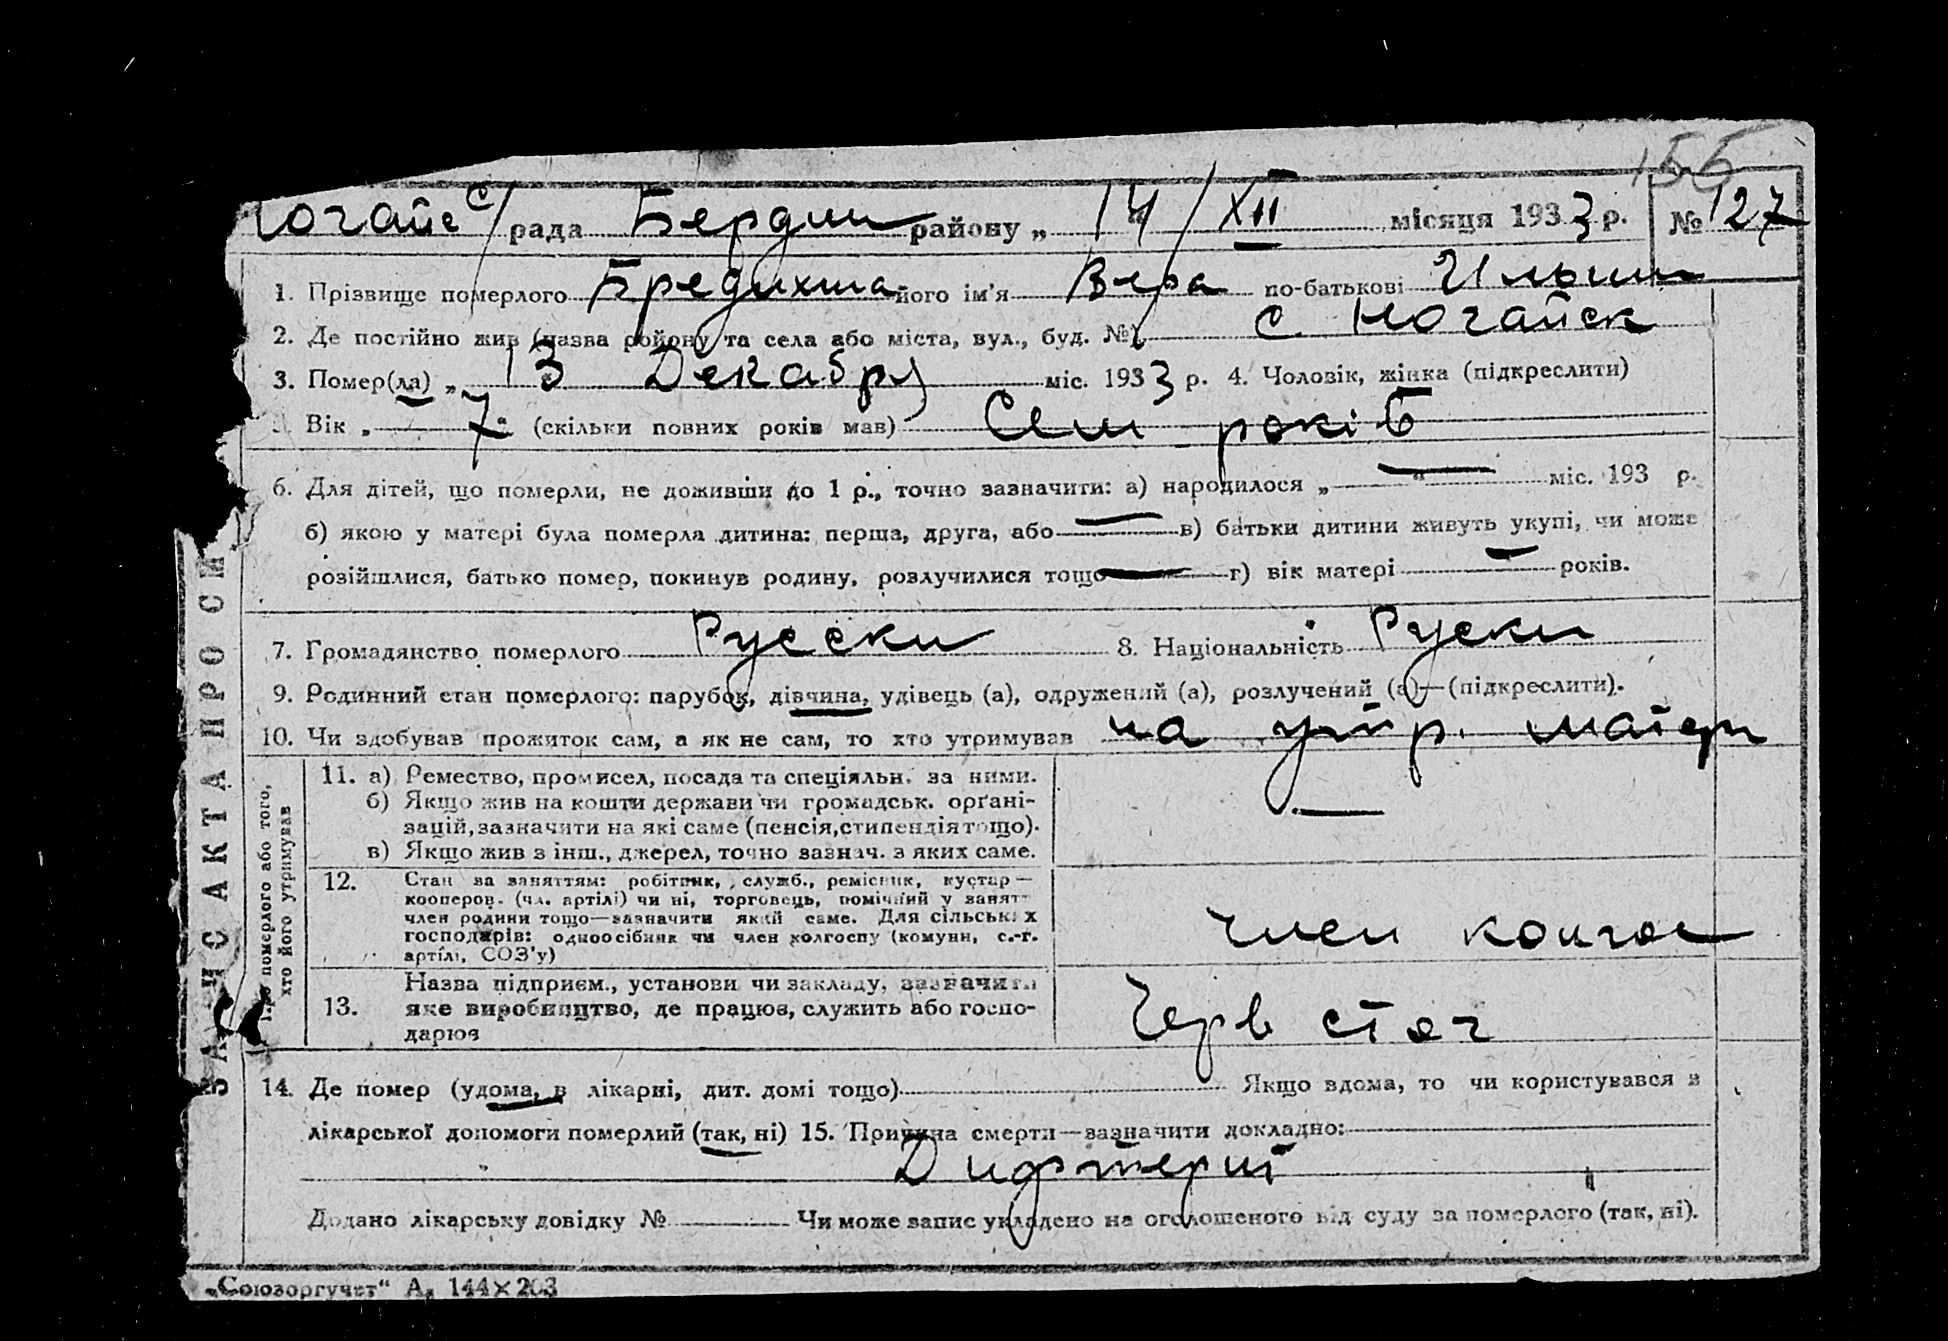 155
Ногайс с/рада Бердян району „ 14 / XII місяця 1933 р. № 127
1. Прізвище померлого Бредихина його ім'я Вера по-батькові Ильин
2. Де постійно жив (назва ройону та села або міста, вул., буд. №) с. Ногайск
3. Помер(ла) „ 13 Декабря міс. 1933 р. 4. Чоловік, жінка (підкреслити)
5. Вік „ 7 “ (скільки повних років мав) Сем років
6. Для дітей, що померли, не доживши до 1 р., точно зазначити: а) народилося „ — “ міс. 193 р.
б) якою у матері була померла дитина: перша, друга, або — в) батьки дитини живуть укупі, чи може
розійшлися, батько помер, покинув родину, розлучилися тощо — г) вік матері — років.
7. Громадянство померлого Русски 8. Національність Руски
9. Родинний стан померлого: парубок, дівчина, удівець (а), одружений (а), розлучений (а)—(підкреслити).
10. Чи здобував прожиток сам, а як не сам, то хто утримував на утр. матери
ЗАПИС АКТА ПРО СМ
Про померлого або того, хто його утримував
11. а) Ремество, промисел, посада та спеціяльн. за ними.
б) Якщо жив на кошти держави чи громадськ. орґані-
зацій, зазначити на які саме (пенсія, стипендія тощо). —
в) Якщо жив з інш., джерел, точно зазнач. з яких саме.
12. Стан за заняттям: робітник, служб., ремісник, кустар—
кооперов. (чл. артілі) чи ні, торговець, помічний у занят
член родини тощо—зазначити який саме. Для сільських
господарів: одноосібник чи член колгоспу (комуни, с.-г.
артілі, СОЗ'у)
член колгос
13. Назва підприєм., установи чи закладу, зазначити
яке виробництво, де працює, служить або госпо-
дарює
Черв стяг
14. Де помер (удома, в лікарні, дит. домі тощо) Якщо вдома, то чи користувався з
лікарської допомоги померлий (так, ні) 15. Причина смерти—зазначити докладно:
Дифтерит
Додано лікарську довідку № Чи може запис укладено на оголошеного від суду за померлого (так, ні).
„Союзоргучет“ А₄ 144×203